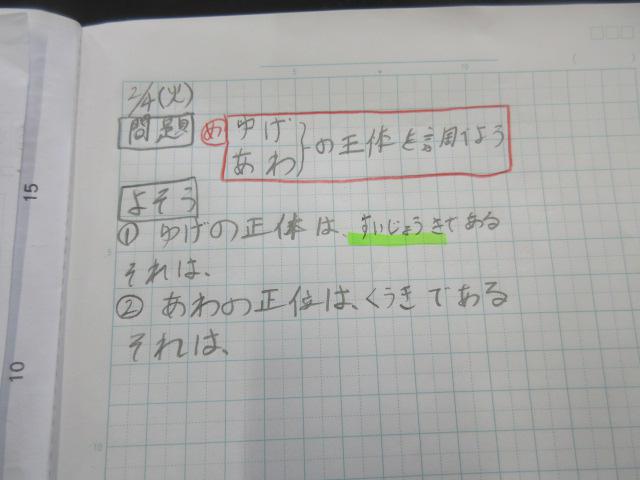 2/4(火)
問題 め ゆげ
あわ
の正体を調べよう
よそう
① ゆげの正体は、すいじょうきである
それは、
② あわの正位は、くうきである
それは、
15
10
5
10
5
10